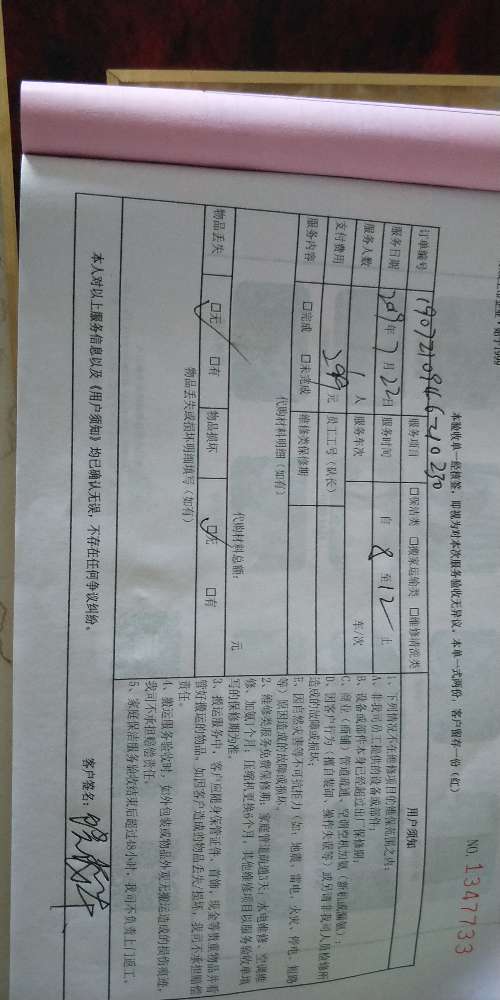 NO. 1347733
本验收单一经核签，即视为对本次服务验收无异议。本单一式两份，客户留存一份（红）
订单编号 服务项目 □保洁类 □搬家运输类 □维修清洗类
服务日期 2019年7月22日 服务时间 自 8 至 12 止
服务人数 1 人 服务车次 车/次
支付费用 299 元 员工工号（队长）
服务内容 □完成 □未完成 维修类保修期
代购材料明细（如有）
代购材料总额： 元
物品丢失 □无 □有 物品损坏 □无 □有
物品丢失或损坏明细填写（如有）
本人对以上服务信息以及《用户须知》均已确认无误，不存在任何争议纠纷。
用户须知
1、下列情况不在维修项目的维保范围之内：
A、非我司员工提供的设备或部件；
B、设备或部件本身已经超过出厂保修期；
C、商业（商铺）管道疏通、空调空机加氨（新机或漏氨）；
D、因客户行为（擅自装卸、操作失误等）或另请非我司人员检修所
造成的故障或损坏；
E、因自然灾害等不可抗拒力（如：地震、雷电、火灾、停电、短路
等）原因造成的故障或损坏。
2、维修类服务免费保修期：家庭管道疏通3天；水电维修、空调维
修、加氨1个月；压缩机更换6个月，其他维修项目以服务验收单填
写的保修期为准。
3、搬运服务中，客户应随身保管证件、首饰、现金等贵重物品并看
管好搬运的物品，如因客户造成的物品丢失/损坏，我司不承担赔偿
责任。
4、搬运服务验收时，如外包装或物品外观无搬运造成的损伤痕迹，
我司不承担赔偿责任。
5、家庭保洁服务验收结束后超过48小时，我司不负责上门返工。
客户签名：